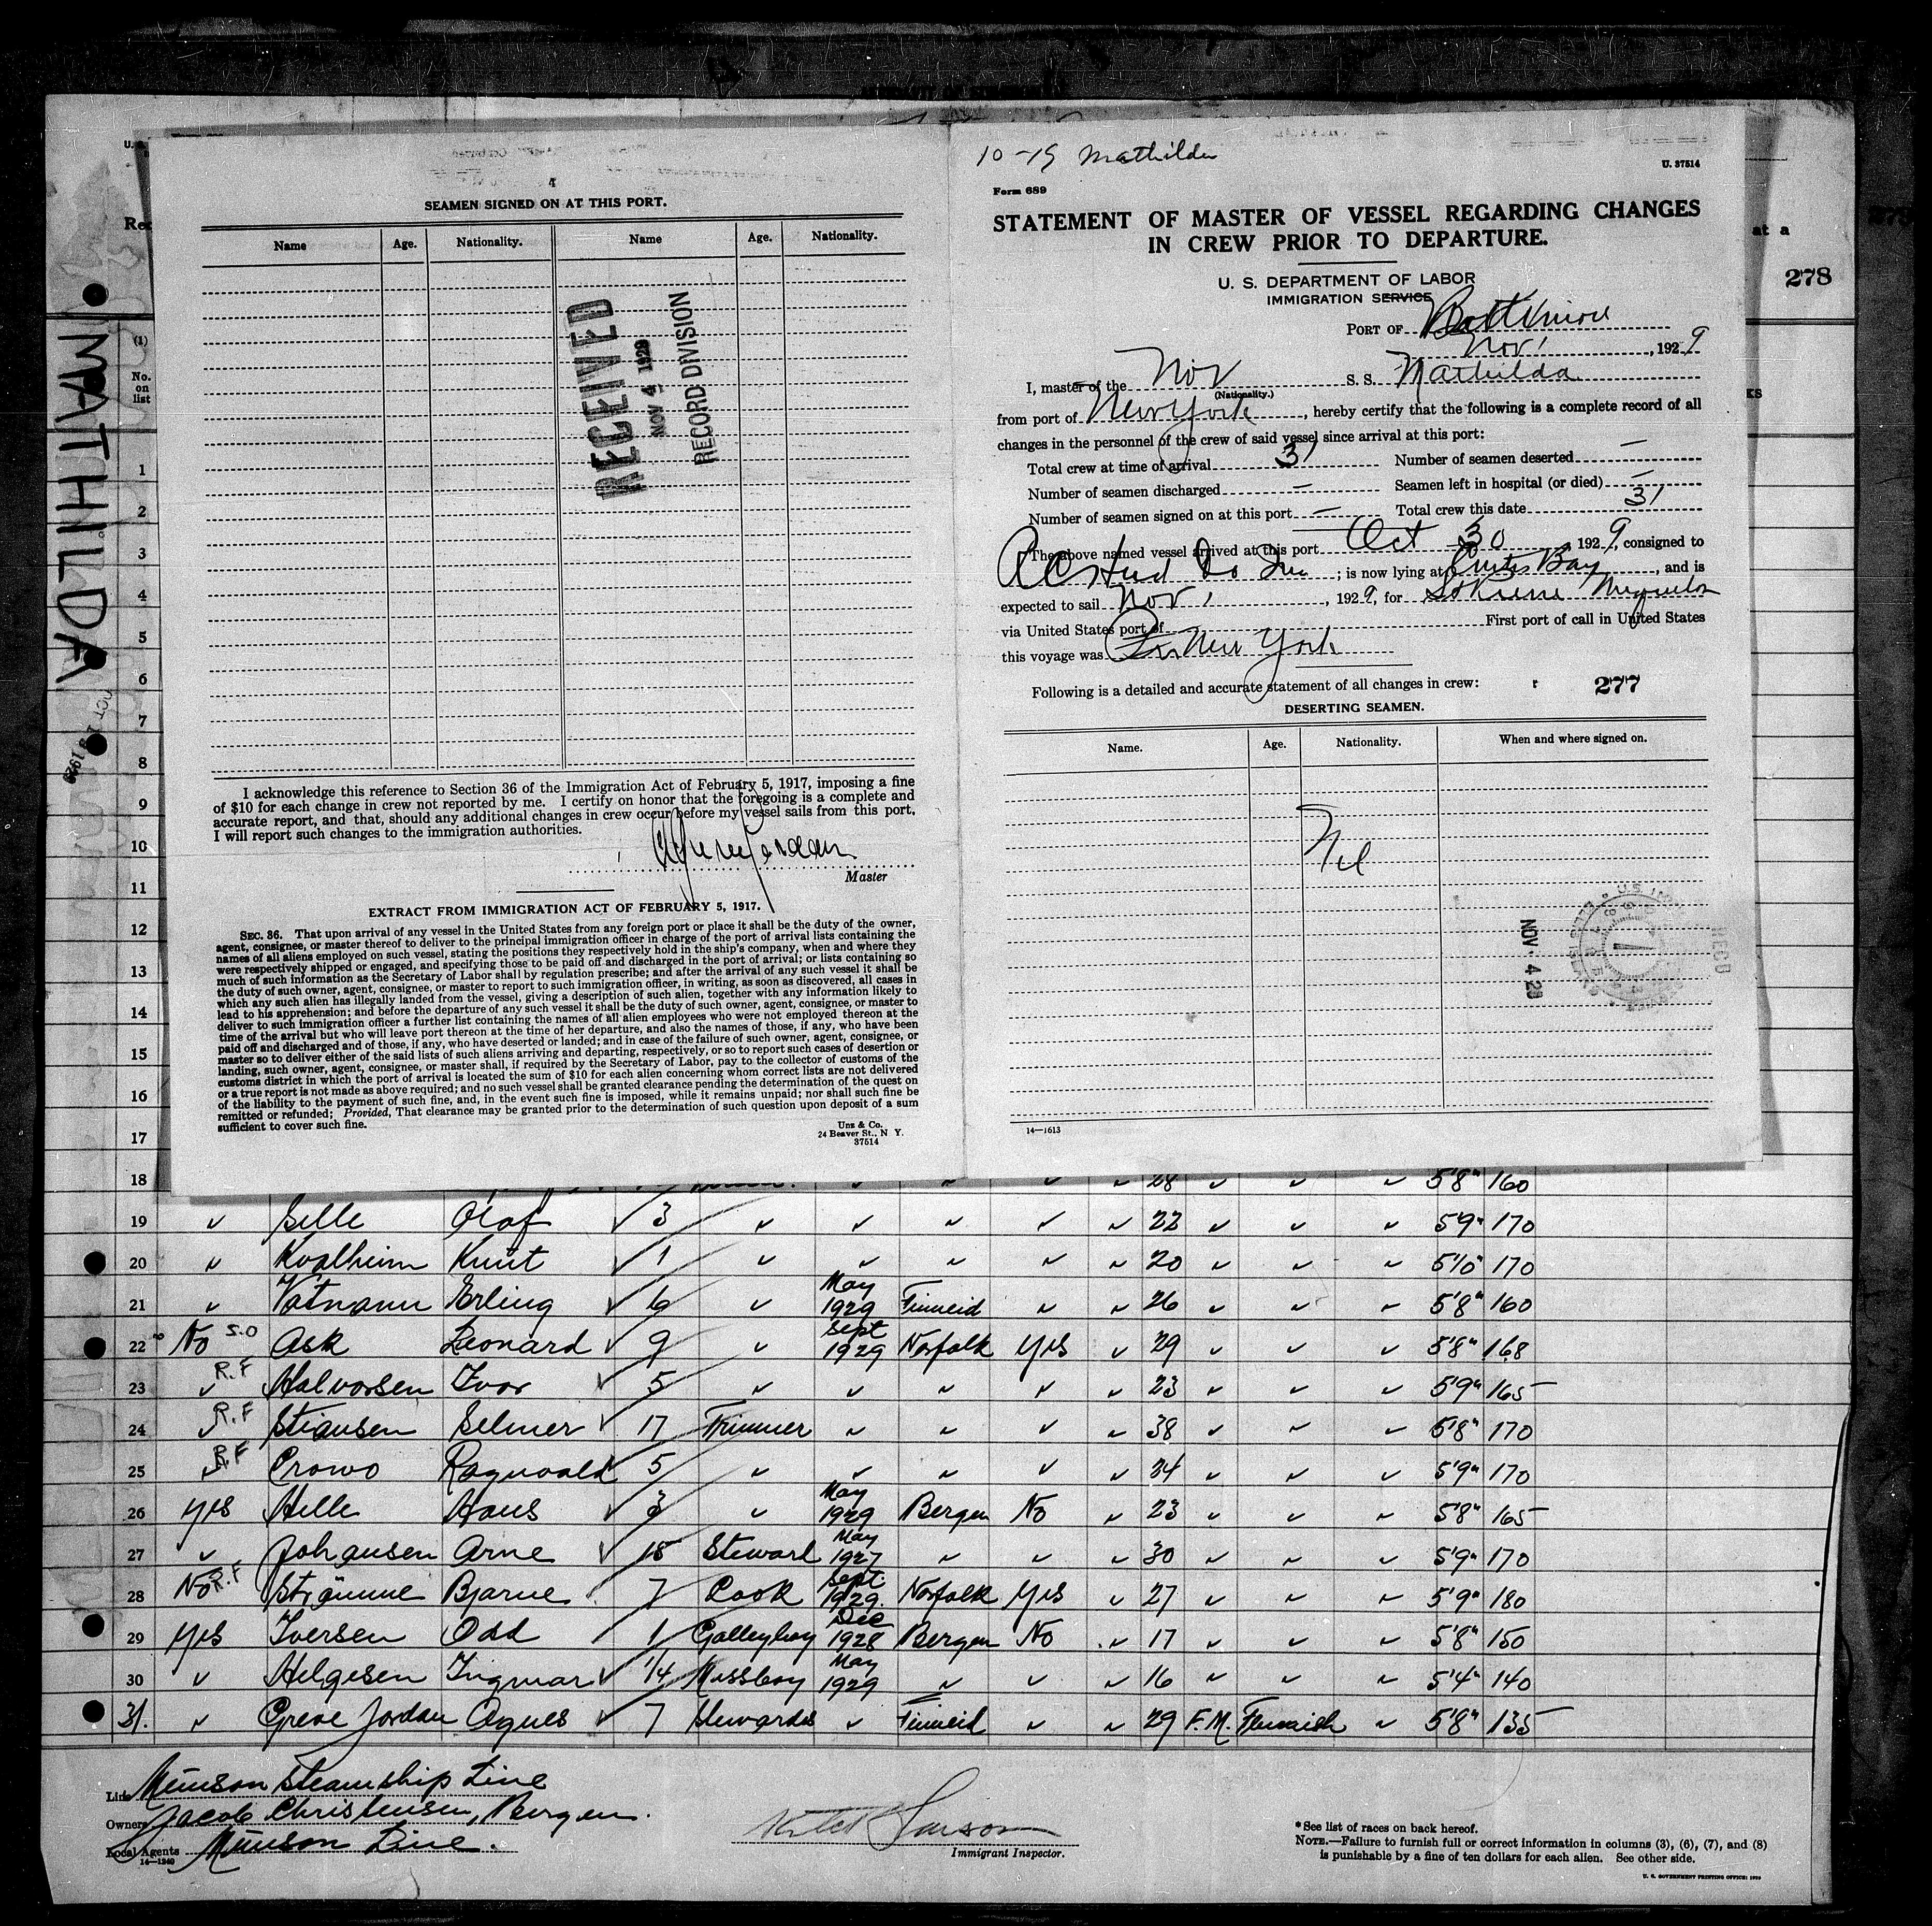 MATHILDA
OCT 19 1929
278
at a
4
SEAMEN SIGNED ON AT THIS PORT.
Name Age. Nationality. Name Age. Nationality.
RECEIVED
NOV 4 1929
RECORD DIVISION
I acknowledge this reference to Section 36 of the Immigration Act of February 5, 1917, imposing a fine
of $10 for each change in crew not reported by me. I certify on honor that the foregoing is a complete and
accurate report, and that, should any additional changes in crew occur before my vessel sails from this port,
I will report such changes to the immigration authorities.
Master
EXTRACT FROM IMMIGRATION ACT OF FEBRUARY 5, 1917.
SEC. 36. That upon arrival of any vessel in the United States from any foreign port or place it shall be the duty of the owner,
agent, consignee, or master thereof to deliver to the principal immigration officer in charge of the port of arrival lists containing the
names of all aliens employed on such vessel, stating the positions they respectively hold in the ship's company, when and where they
were respectively shipped or engaged, and specifying those to be paid off and discharged in the port of arrival; or lists containing so
much of such information as the Secretary of Labor shall by regulation prescribe; and after the arrival of any such vessel it shall be
the duty of such owner, agent, consignee, or master to report to such immigration officer, in writing, as soon as discovered, all cases in
which any such alien has illegally landed from the vessel, giving a description of such alien, together with any information likely to
lead to his apprehension; and before the departure of any such vessel it shall be the duty of such owner, agent, consignee, or master to
deliver to such immigration officer a further list containing the names of all alien employees who were not employed thereon at the
time of the arrival but who will leave port thereon at the time of her departure, and also the names of those, if any, who have been
paid off and discharged and of those, if any, who have deserted or landed; and in case of the failure of such owner, agent, consignee, or
master so to deliver either of the said lists of such aliens arriving and departing, respectively, or so to report such cases of desertion or
landing, such owner, agent, consignee, or master shall, if required by the Secretary of Labor, pay to the collector of customs of the
customs district in which the port of arrival is located the sum of $10 for each alien concerning whom correct lists are not delivered
or a true report is not made as above required; and no such vessel shall be granted clearance pending the determination of the quest on
of the liability to the payment of such fine, and, in the event such fine is imposed, while it remains unpaid; nor shall such fine be
remitted or refunded; Provided, That clearance may be granted prior to the determination of such question upon deposit of a sum
sufficient to cover such fine.
Unz & Co.
24 Beaver St., N. Y.
37514
10-19 Mathilda
U. 37514
Form 689
STATEMENT OF MASTER OF VESSEL REGARDING CHANGES
IN CREW PRIOR TO DEPARTURE.
U. S. DEPARTMENT OF LABOR
IMMIGRATION SERVICE
PORT OF Baltimore
Nov 1, 1929
I, master of the Nor S. S. Mathilda
(Nationality.)
from port of New York, hereby certify that the following is a complete record of all
changes in the personnel of the crew of said vessel since arrival at this port:
Total crew at time of arrival 31 Number of seamen deserted —
Number of seamen discharged — Seamen left in hospital (or died) —
Number of seamen signed on at this port — Total crew this date 31
The above named vessel arrived at this port Oct 30, 1929, consigned to
; is now lying at Curtis Bay, and is
expected to sail Nov 1, 1929, for Miquelon
via United States port of First port of call in United States
this voyage was New York
Following is a detailed and accurate statement of all changes in crew: 277
DESERTING SEAMEN.
Name. Age. Nationality. When and where signed on.
Nil
NOV 4 29
RECD
14—1613
(1)
No.
on
list
1
2
3
4
5
6
7
8
9
10
11
12
13
14
15
16
17
18 28 5'8" 160
19 Selle Olaf 3 22 5'9" 170
20 Kvalheim Knut 1 20 5'10" 170
21 Vatnamn Erling 6 May 1929 Finneid 26 5'8" 160
22 No S.O Ask Leonard 9 Sept 1929 Norfolk Yes 29 5'8" 168
23 R.F Halvorsen Ivor 5 23 5'9" 165
24 R.F Stiansen Selmer 17 Trimmer 38 5'8" 170
25 R.F Crowo Ragnvald 5 34 5'9" 170
26 Yes Hille Hans 3 May 1929 Bergen No 23 5'8" 165
27 Johansen Arne 15 Steward May 1927 30 5'9" 170
28 No R.F Strømme Bjarne 7 Cook Sept. 1929. Norfolk Yes 27 5'9" 180
29 Yes Iversen Odd 1 Galleyboy Dec 1928 Bergen No 17 5'8" 150
30 Helgesen Ingmar 14 Messboy May 1929 16 5'4" 140
31. Greve Jordan Agnes 7 Finneid 29 F.M. Flemish 5'8" 135
Line Munson Steamship Line
Owners Jacob Christensen, Bergen.
Local Agents Munson Line.
14—1240
Immigrant Inspector.
*See list of races on back hereof.
NOTE.—Failure to furnish full or correct information in columns (3), (6), (7), and (8)
is punishable by a fine of ten dollars for each alien. See other side.
U. S. GOVERNMENT PRINTING OFFICE: 1929